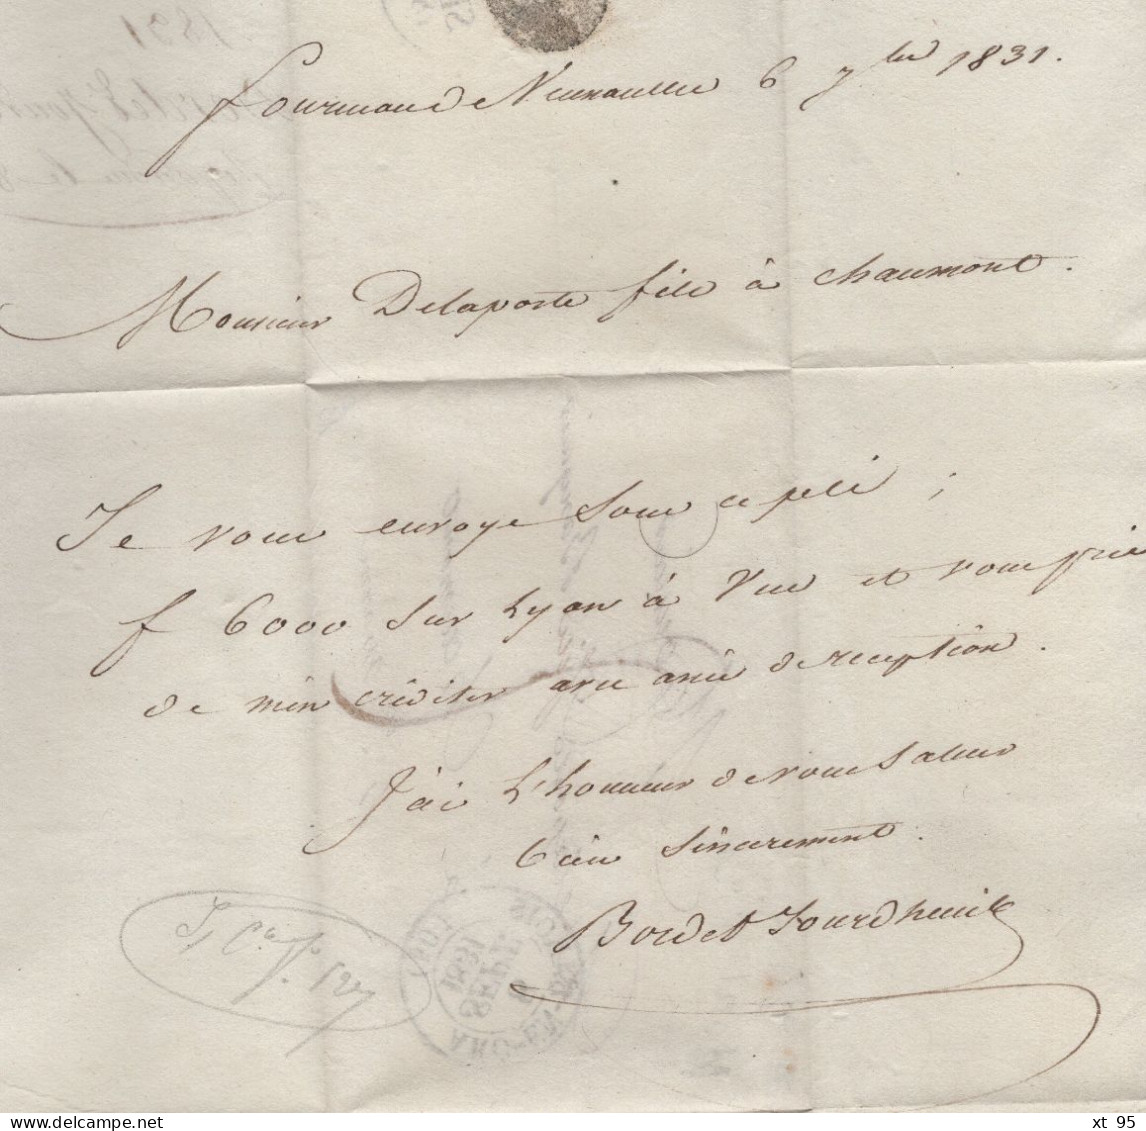 Fourneau de Neuvaulle 6 7bre 1831.
Monsieur Delaporte fils à Chaumont.
Je vous envoye sous ce pli ;
f 6000 sur Lyon à vue et vous prie
de m'en créditer avec avis de reception.
J'ai l'honneur de vous saluer
bien sincerement.
Bordet Jourdheuil
1831
ARC-EN-B
xt 95